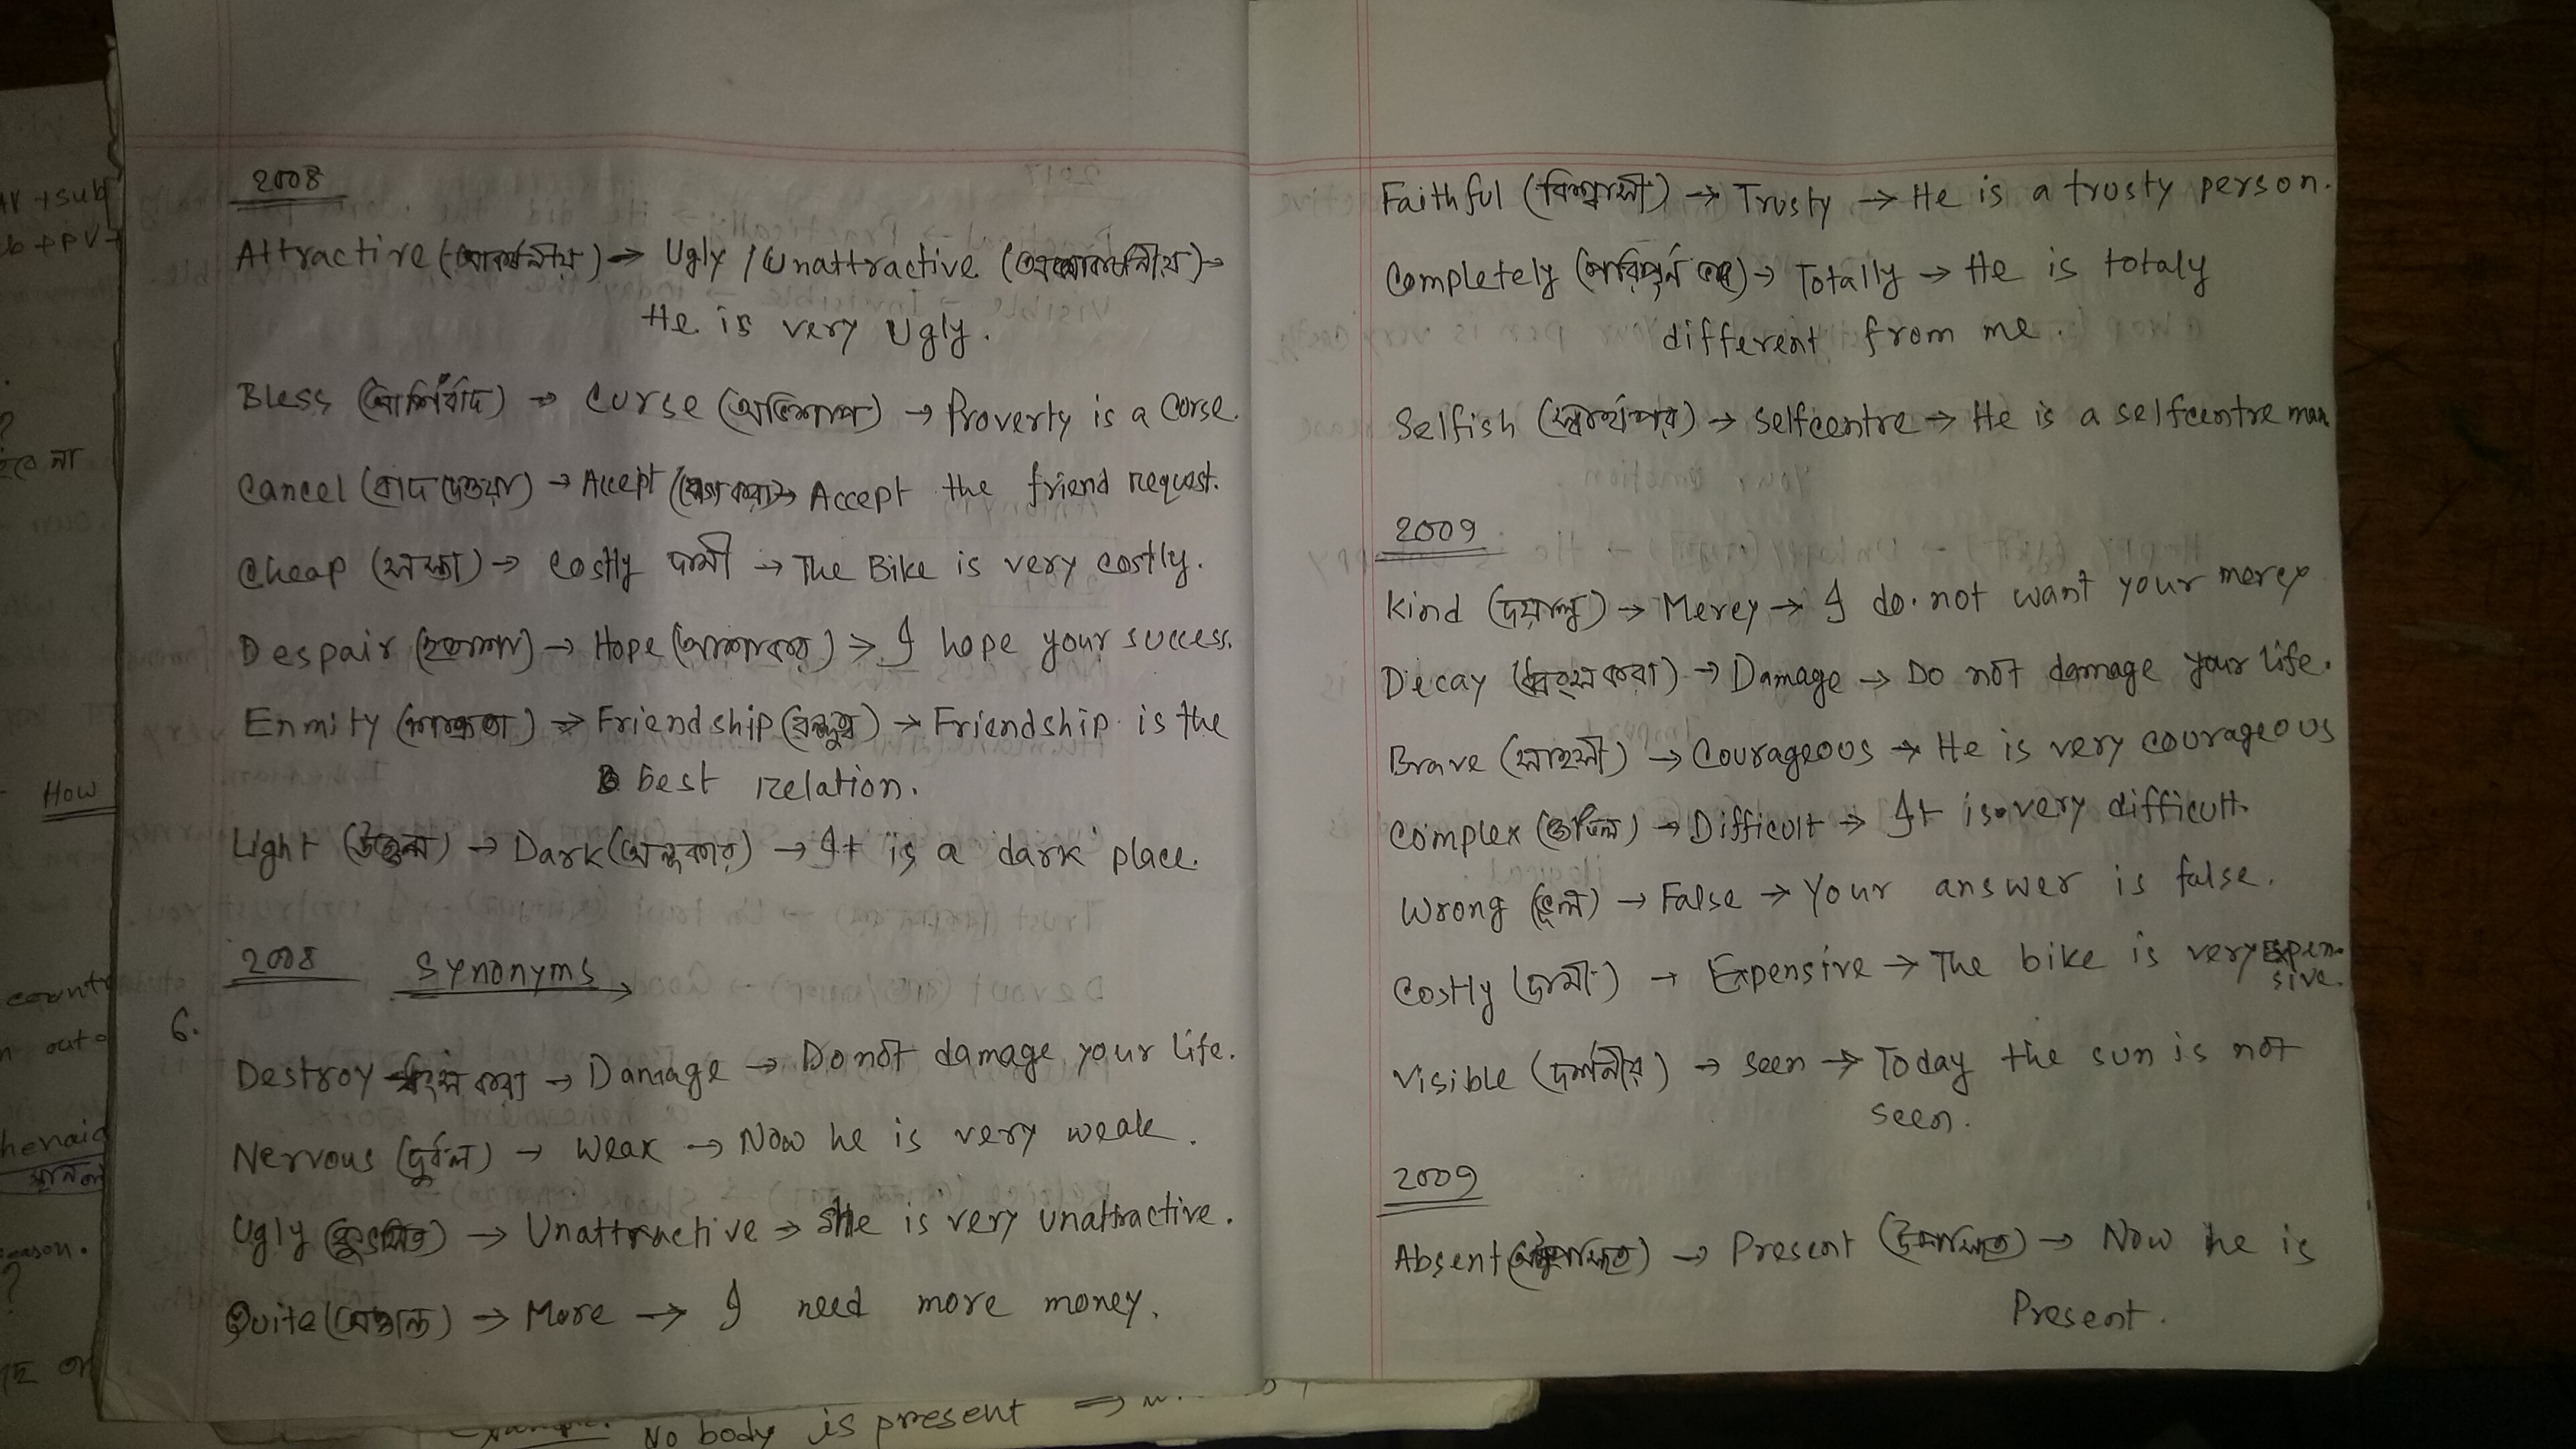 2008
Attractive (আকর্ষনীয়) → Ugly / Unattractive (অআকর্ষনীয়) →
He is very Ugly.
Bless (আর্শিবাদ) → Curse (অভিশাপ) → Proverty is a Curse.
Cancel (বাদ দেওয়া) → Accept (গ্রহণ করা) → Accept the friend request.
Cheap (সস্তা) → Costly দামী → The Bike is very costly.
Despair (হতাশা) → Hope (আশা করা) → I hope your success.
Enmity (শত্রুতা) → Friendship (বন্ধুত্ব) → Friendship is the
best relation.
Light (উজ্জ্বল) → Dark (অন্ধকার) → It is a dark place.
2008 Synonyms →
6.
Destroy ধ্বংস করা → Damage → Do not damage your life.
Nervous (দুর্বল) → Weak → Now he is very weak.
Ugly (কুৎসিত) → Unattractive → She is very unattractive.
Quite (অত্যন্ত) → More → I need more money.
Faithful (বিশ্বাসী) → Trusty → He is a trusty person.
Completely (পরিপূর্ন) → Totally → He is totaly
different from me.
Selfish (স্বার্থপর) → Selfcentre → He is a selfcentre man
2009
Kind (দয়ালু) → Mercy → I do not want your mercy
Decay (ধ্বংস করা) → Damage → Do not damage your life.
Brave (সাহসী) → Courageous → He is very courageous
Complex (জটিল) → Difficult → It is very difficult.
Wrong (ভুল) → False → Your answer is false.
Costly (দামী) → Expensive → The bike is very Expen-
sive.
Visible (দর্শনীয়) → Seen → Today the sun is not
seen.
2009
Absent (অনুপস্থিত) → Present (উপস্থিত) → Now he is
Present.
How
No body is present →